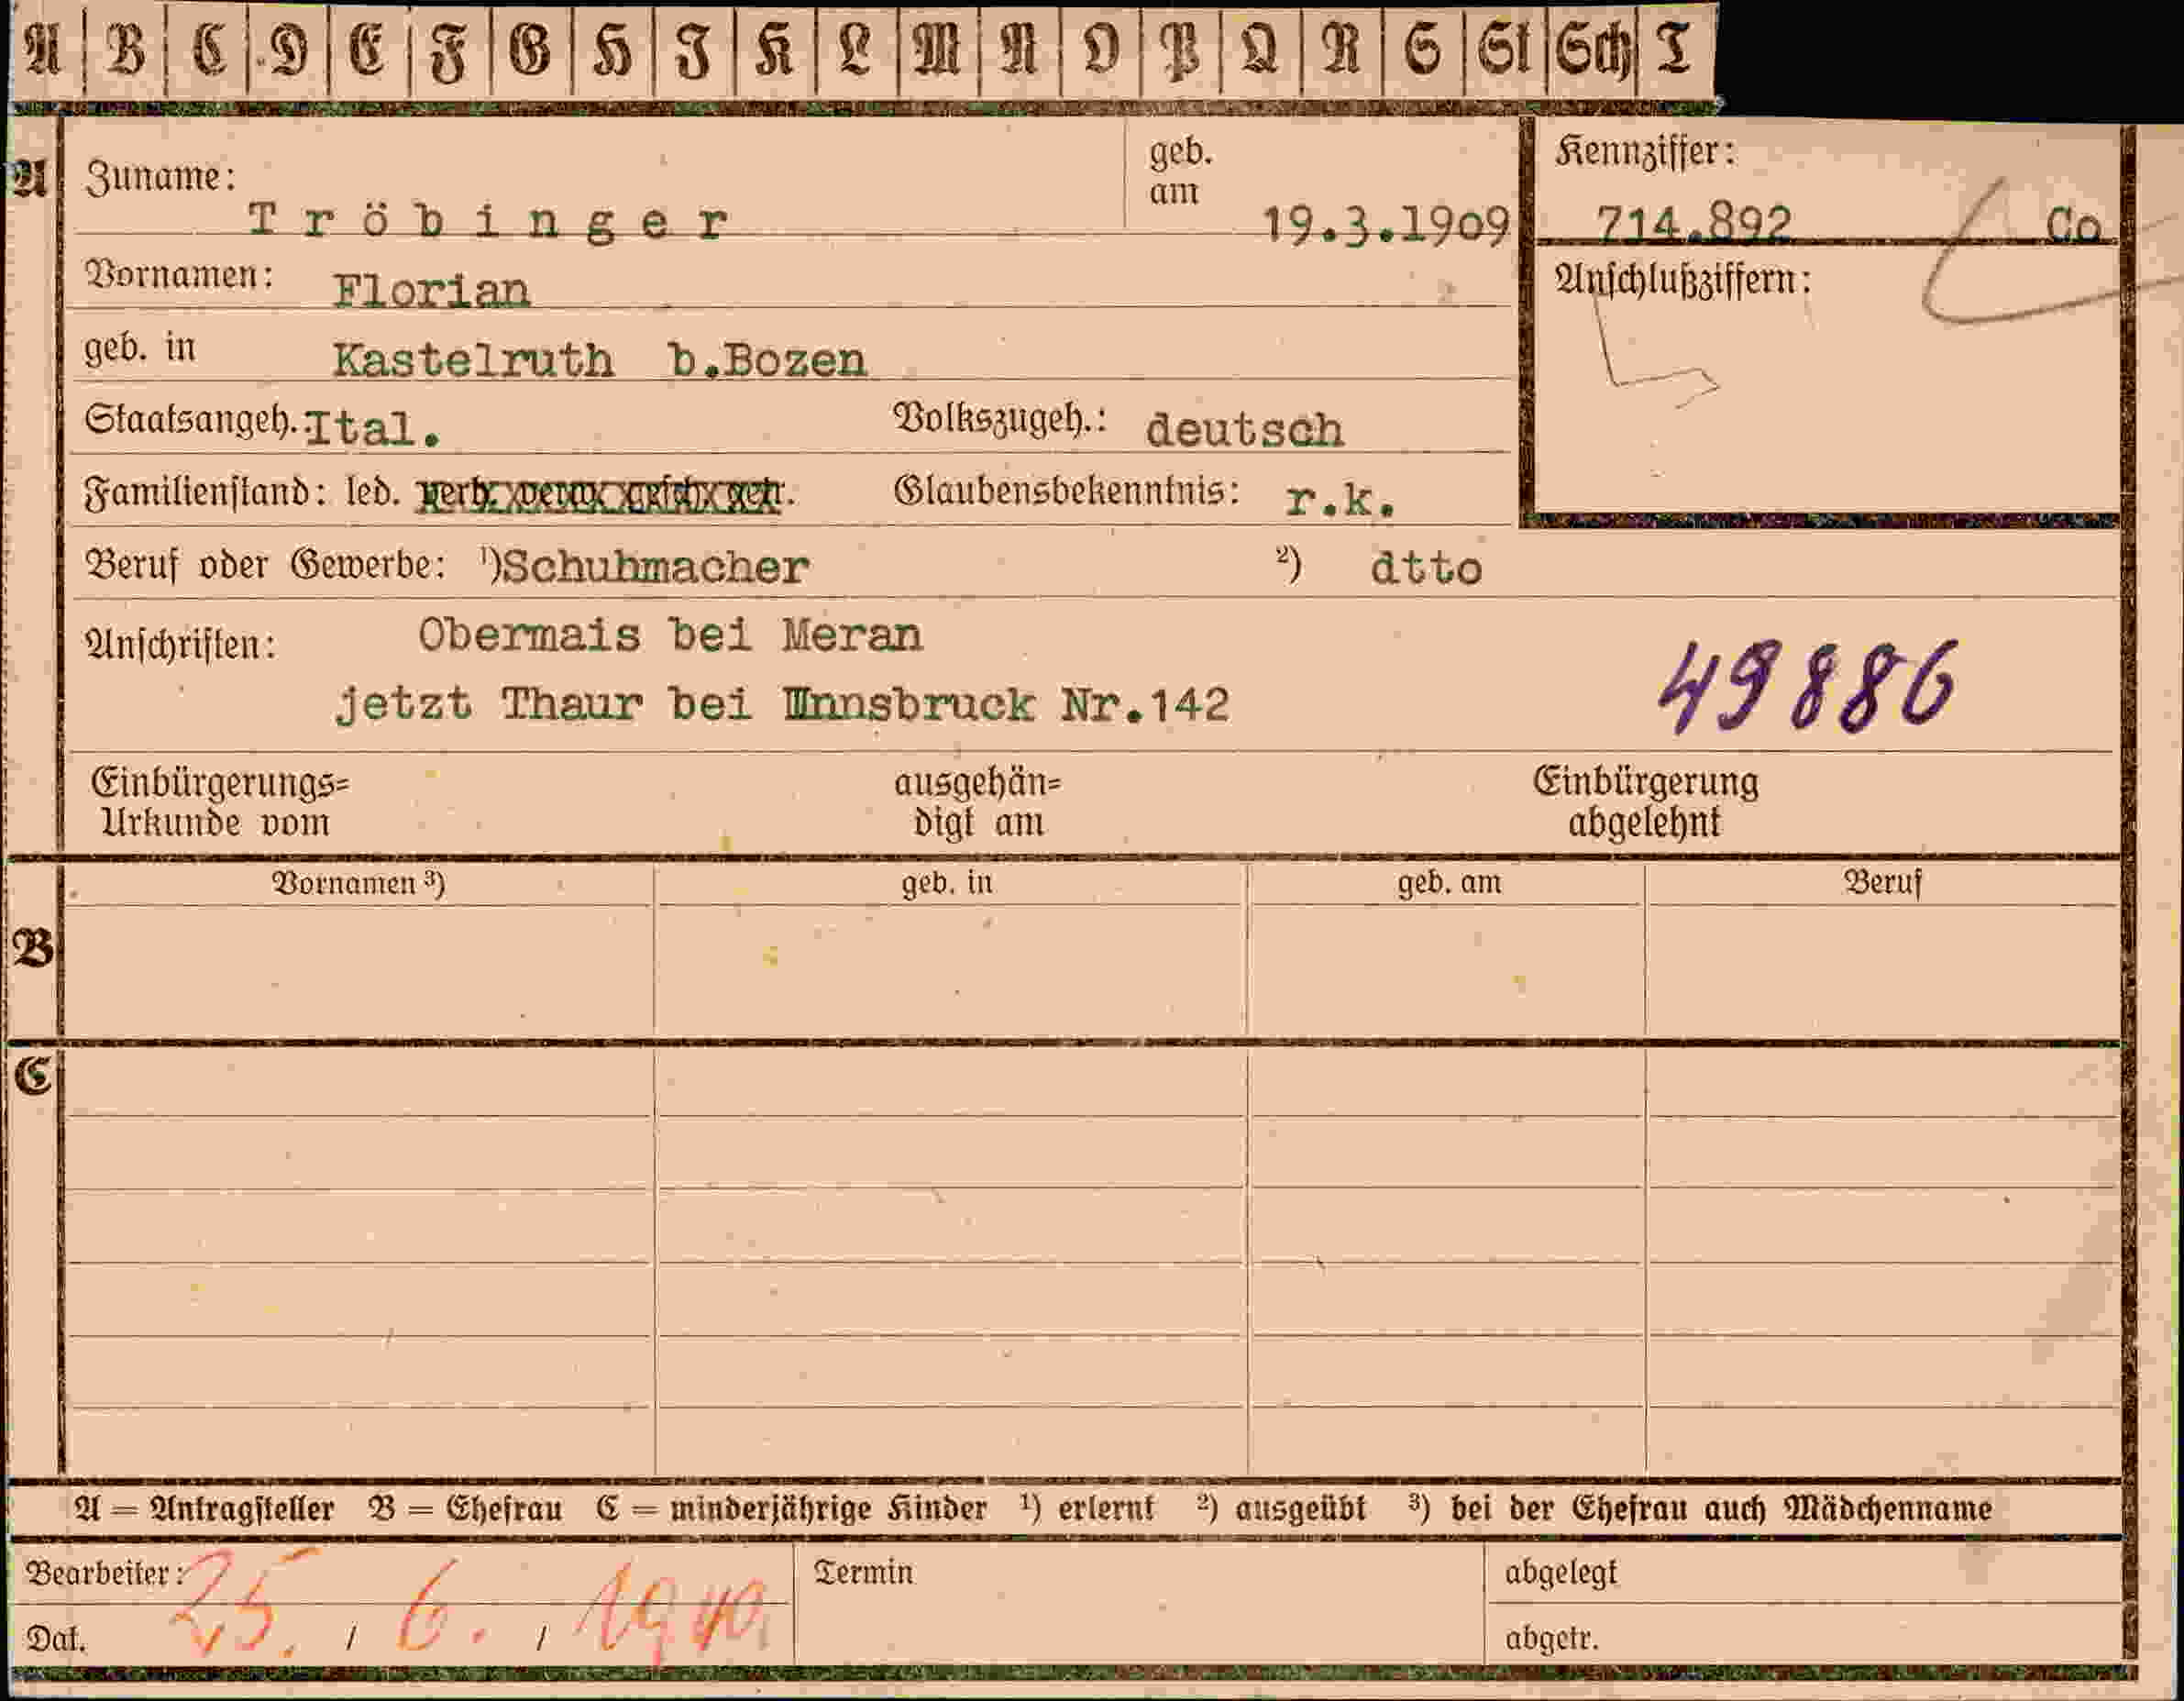 A B C D E F G H I K L M N O P Q R S St Sch T
A
Zuname: Tröbinger
geb. am 19.3.1909
Kennziffer: 714.892 Co
Vornamen: Florian
Anschlußziffern:
geb. in Kastelruth b.Bozen
Staatsangeh. Ital. Volkszugeh.: deutsch
Familienstand: led. verh. verw. gesch. getr. Glaubensbekenntnis: r.k.
Beruf oder Gewerbe: ¹) Schuhmacher ²) dtto
Anschriften: Obermais bei Meran
jetzt Thaur bei Innsbruck Nr.142
49886
Einbürgerungs=
Urkunde vom
ausgehän=
digt am
Einbürgerung
abgelehnt
B
Vornamen ³) geb. in geb. am Beruf
C
A = Antragsteller B = Ehefrau C = minderjährige Kinder ¹) erlernt ²) ausgeübt ³) bei der Ehefrau auch Mädchenname
Bearbeiter:
Dat. 25. / 6. / 1940
Termin
abgelegt
abgetr.